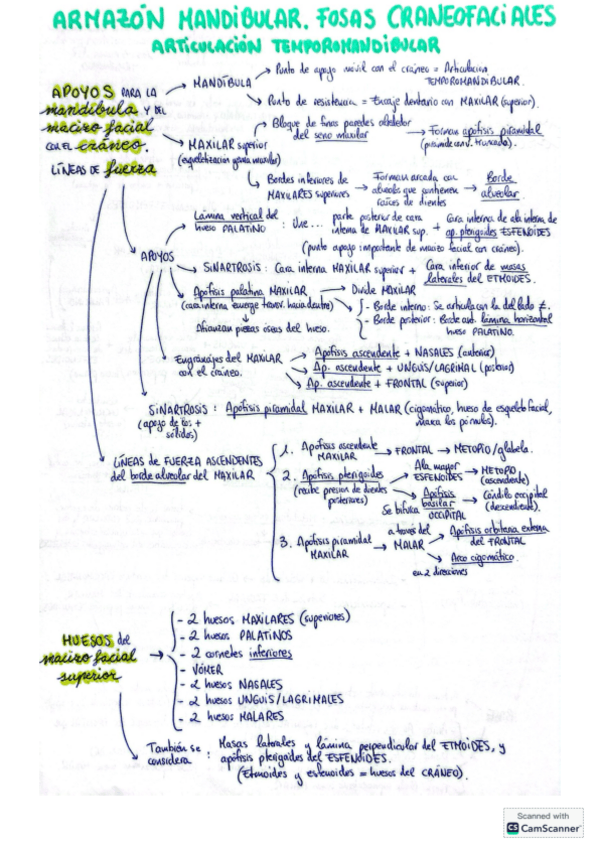 ARMAZÓN MANDIBULAR. FOSAS CRANEOFACIALES
ARTICULACIÓN TEMPOROMANDIBULAR
APOYOS PARA LA
mandíbula Y DEL
macizo facial
CON EL cráneo.
LÍNEAS DE fuerza
→ MANDÍBULA
→ Punto de apoyo móvil con el cráneo = Articulación
TEMPOROMANDIBULAR.
→ Punto de resistencia = Encaje dentario con MAXILAR (superior).
→ MAXILAR superior
→ Bloque de finas paredes alrededor
del seno maxilar
→ Forman apófisis piramidal
→ Bordes inferiores de
MAXILARES superiores
→ Forman arcada con
alveolos que contienen
raíces de dientes
→ Borde
alveolar.
APOYOS
→ Lámina vertical del
hueso PALATINO
: Une...
parte posterior de cara
interna de MAXILAR sup.
+ Cara interna de ala interna de
ap. pterigoides ESFENOIDES
(punto apoyo importante de macizo facial con cráneo).
→ SINARTROSIS : Cara interna MAXILAR superior + Cara inferior de masas
laterales del ETMOIDES.
→ Apófisis palatina MAXILAR
(cara interna emerge transv. hacia dentro)
→ Divide MAXILAR
- Borde interno: Se articula con la del lado ≠.
- Borde posterior: Borde ant. lámina horizontal
hueso PALATINO.
↓
Afianzan piezas óseas del hueso.
→ Engranajes del MAXILAR
con el cráneo.
→ Apófisis ascendente + NASALES (anterior)
→ Ap. ascendente + UNGUIS/LAGRIMAL (posterior)
→ Ap. ascendente + FRONTAL (superior)
SINARTROSIS : Apófisis piramidal MAXILAR + MALAR (cigomático, hueso de esqueleto facial,
marca los pómulos).
(apoyo de los +
sólidos)
LÍNEAS de FUERZA ASCENDENTES
del borde alveolar del MAXILAR
1. Apófisis ascendente
MAXILAR
→ FRONTAL → METOPIO/glabela.
2. Apófisis pterigoides
(recibe presión de dientes
posteriores)
→ Ala mayor
ESFENOIDES
→ METOPIO
(ascendente)
Se bifurca
→ Apófisis
basilar
OCCIPITAL
→ Cóndilo occipital
(descendente).
3. Apófisis piramidal
MAXILAR
a través del
→ MALAR
→ Apófisis orbitaria externa
del FRONTAL
→ Arco cigomático.
en 2 direcciones
HUESOS del
macizo facial
superior
- 2 huesos MAXILARES (superiores)
- 2 huesos PALATINOS
- 2 cornetes inferiores
- VÓMER
- 2 huesos NASALES
- 2 huesos UNGUIS/LAGRIMALES
- 2 huesos MALARES
También se
considera :
Masas laterales y lámina perpendicular del ETMOIDES, y
apófisis pterigoides del ESFENOIDES.
(Etmoides y esfenoides = huesos del CRÁNEO).
Scanned with
CS CamScanner